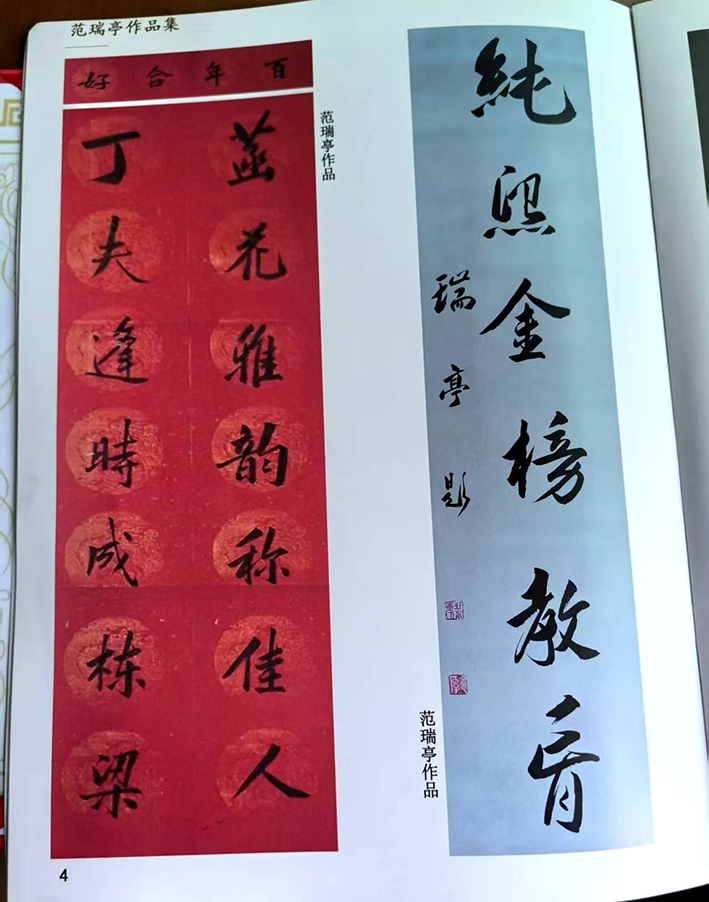 范瑞亭作品集
百年合好
花雅韵称佳人
丁夫逢時成栋梁
范瑞亭作品
純熙金榜教育
瑞亭题
范瑞亭作品
4